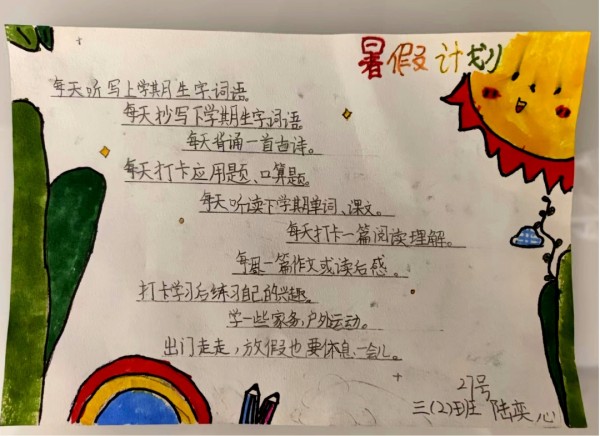 暑假计划
每天听写上学期生字词语。
每天抄写下学期生字词语
每天背诵一首古诗。
每天打卡应用题、口算题。
每天听读下学期单词、课文。
每天打卡一篇阅读理解。
每一篇作文或读后感。
打卡学习后练习自己的兴趣。
学一些家务,户外运动。
出门走走,放假也要休息一会儿。
27号
三(2)班 陆奕心